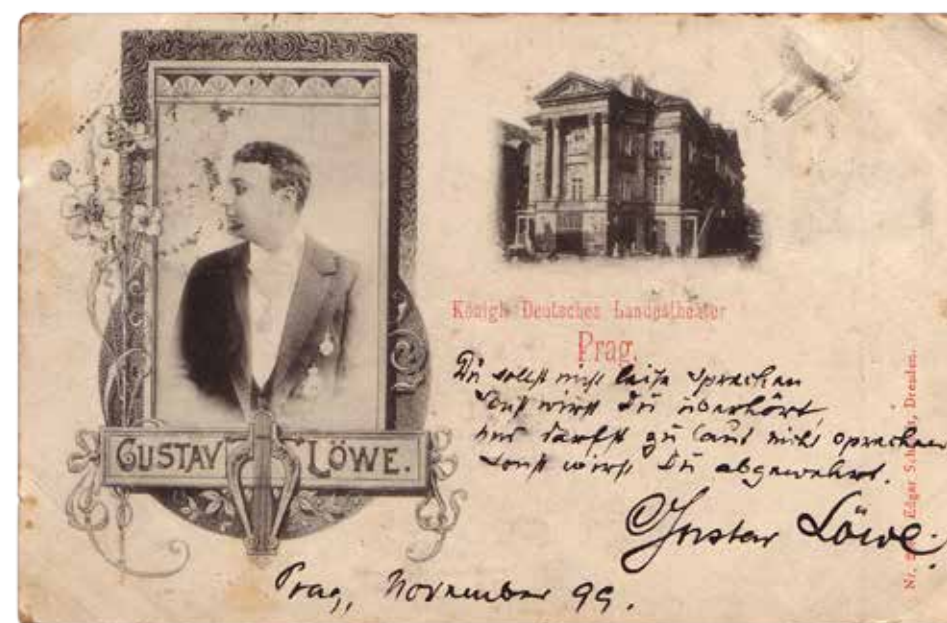 GUSTAV LÖWE.
Königl. Deutsches Landestheater
Prag.
Du sollst nicht leise sprechen
sonst wirst Du überhört,
und darfst zu laut nicht sprechen
sonst wirst Du abgewehrt.
Gustav Löwe.
Prag, November 99.
Edgar Dresden.